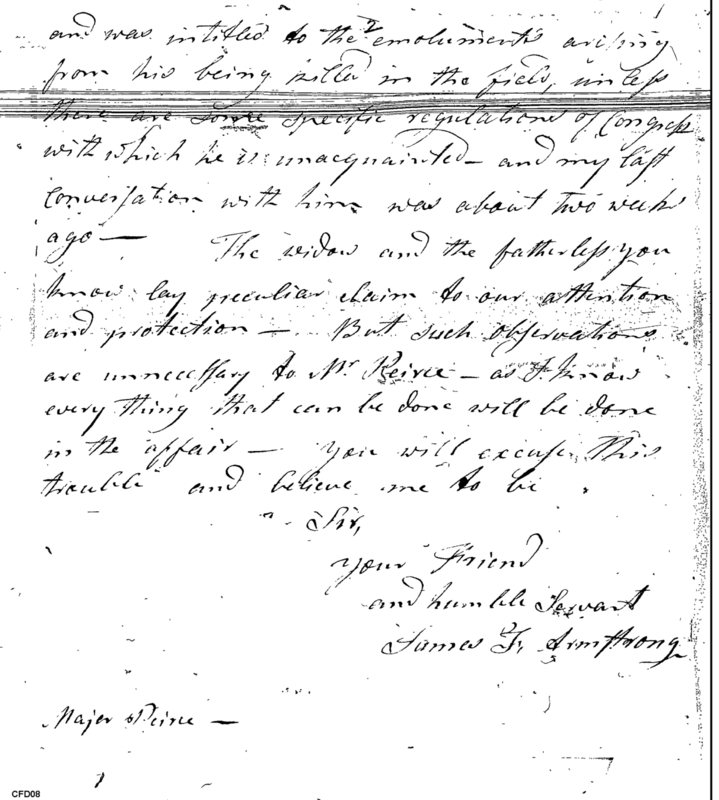 and was intitled to the emoluments arising
from his being killed in the field, unless
there are some specific regulations of Congress
with which he is unacquainted — and my last
Conversation with him was about two weeks
ago — The widow and the fatherless you
know lay peculiar claim to our attention
and protection — But such observations
are unnecessary to Mr Peirce — as I know
every thing that can be done will be done
in the affair — you will excuse this
trouble and believe me to be
Sir,
your Friend
and humble Servant
James F. Armstrong
Major Peirce —
CFD08